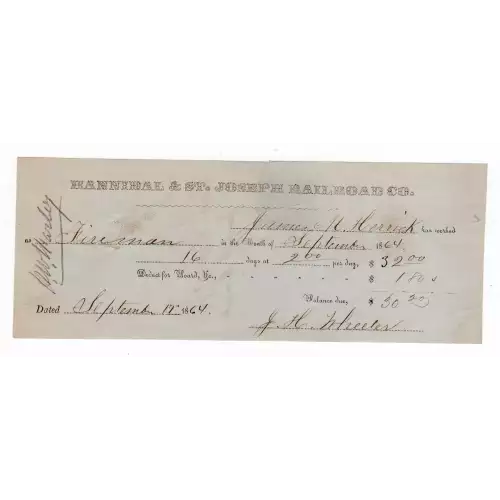 HANNIBAL & ST. JOSEPH RAILROAD CO.
James N. Herrick has worked
as Fireman in the Month of September 1864.
16 days at 2.00 per day, $ 32.00
Deduct for Board, &c., - - - - - $ 1.80
Balance due, $ 30.20
Dated September 19th 1864.
J. H. Wheeler